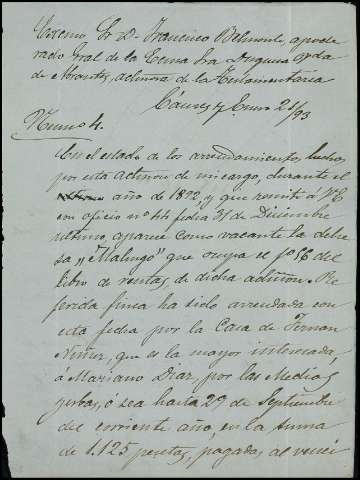 Excmo Sr D. Francisco Belmonte, apode
rado Gral de la Excma Sra Duquesa Vda
de Abrantes, admora de la Testamentaria
Cáceres y Enero 21/93
Numo 4.
En el estado de los arrendamientos hechos
por esta Admon de mi cargo, durante el
año de 1892, y que remití á V.E
con oficio nº 44 fecha 31 de Diciembre
ultimo, aparece como vacante la dehe
sa "Malingo" que ocupa el fº 56 del
libro de rentas de dicha admon. Re
ferida finca ha sido arrendada con
esta fecha por la Casa de Fernan
Nuñez, que es la mayor interesada,
á Mariano Diaz, por las Medias
yerbas, ó sea hasta 29 de Septiembre
del corriente año, en la suma
de 1.125 pesetas, pagadas al venci